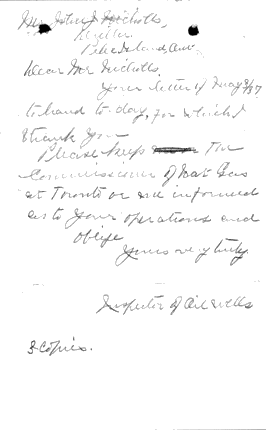 Dear Mr Nicholls,
Your letter of May 3/37
to hand to-day, for which I
thank you
Please keep The
Commissioner of Nat. Gas
at Toronto or me informed
as to your operations and
oblige
Yours very truly
Inspector of Oil Wells
3 Copies.